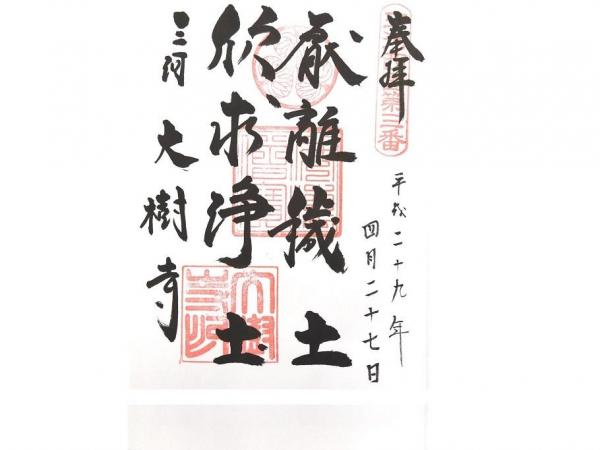 奉拝
第三番
平成二十九年
四月二十七日
厭離穢土
欣求浄土
三河 大樹寺